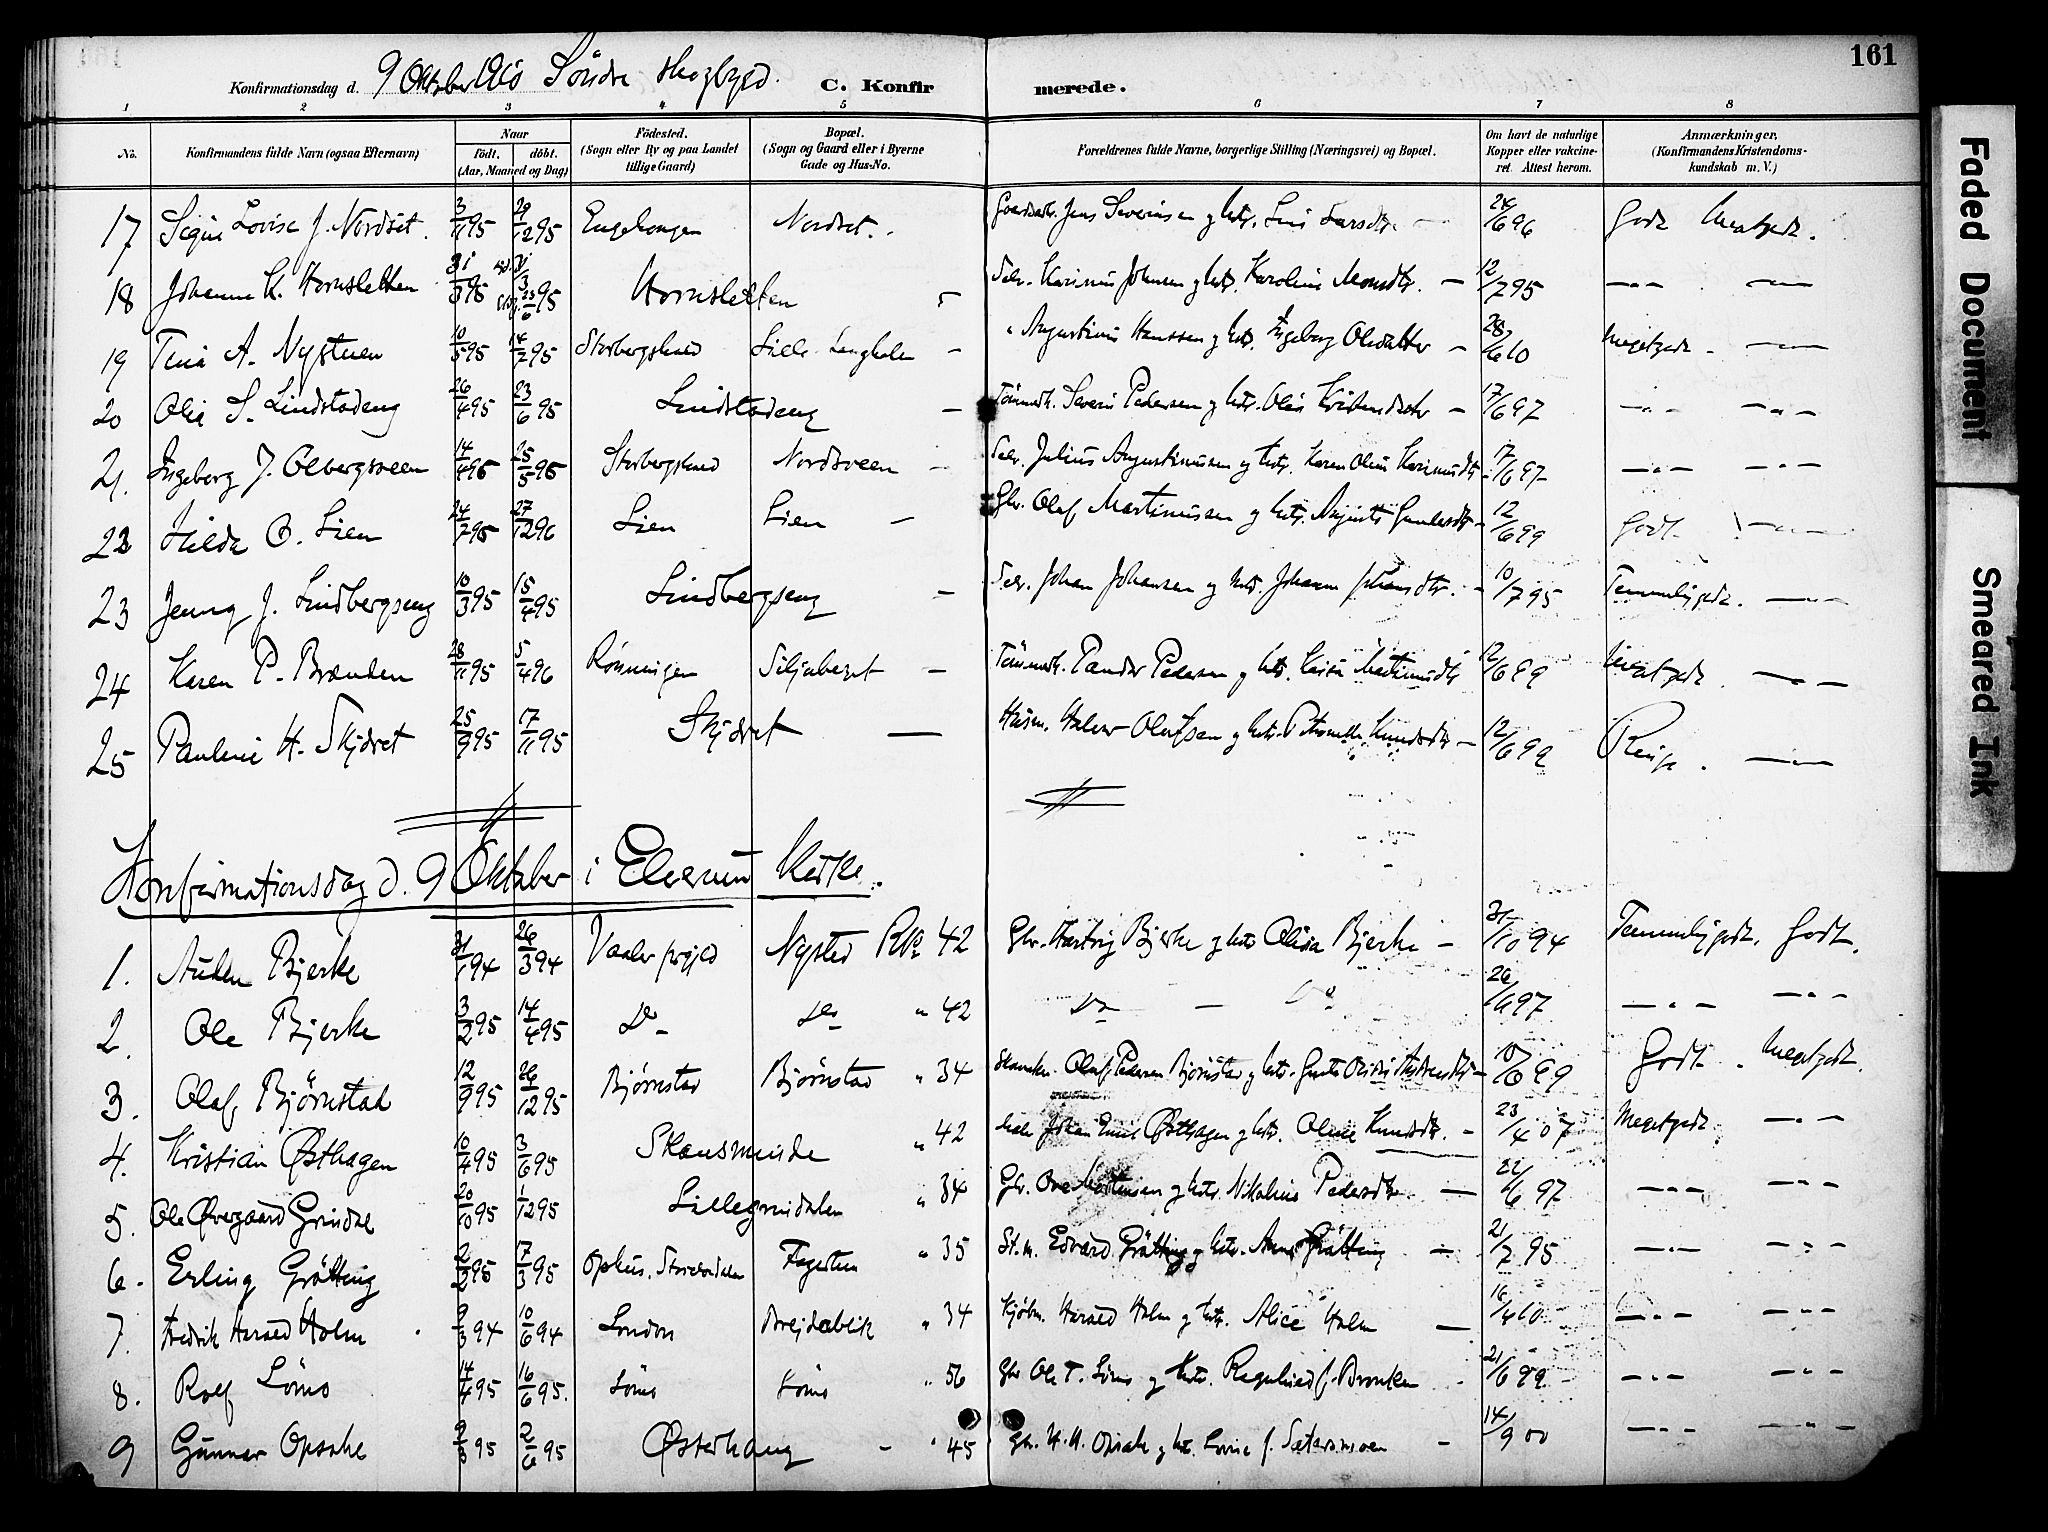 161
Konfirmationsdag d. 9 Oktober 1910 Söndre Skogbygd. C. Konfir merede.
1 2 3 4 5 6 7 8
No. Konfirmandens fulde Navn (ogsaa Efternavn) Naar født. døbt. (Aar, Maaned og Dag) Fødested. (Sogn eller By og paa Landet tillige Gaard) Bopæl. (Sogn og Gaard eller i Byerne Gade og Hus-No. Forældrenes fulde Navne, borgerlige Stilling (Næringsvei) og Bopæl. Om havt de naturlige Kopper eller vakcineret. Attest herom. Anmærkninger, (Konfirmandens Kristendomskundskab m. V.)
17 Signe Lovise J. Nordset. 3/11 95 29/12 95 Nordset. Jens Severinsen og hstr. Larsdtr. 24/6 96 Godt Megetgodt.
18 Johanne K. Hornsletten 31/3 95 Hornsletten Selv. Karinius Johnsen og hstr. Karoline 12/7 95 — " — — " —
19 A. Nystuen 10/5 95 14/7 95 Storbergshaed Lille Langholen — " Augustinus Hanssen og hstr. Ingeborg Olsdatter — 28/6 10 Megetgodt — — " —
20 Olie S. Lindstadeng 26/4 95 23/6 95 Lindstadeng — Tömmerh. Severin Pedersen og hstr. Oline — 17/6 97 — " — — " —
21. Ingeborg J. Olbergsveen 14/4 95 25/5 95 Nordsveen — Selv. Julius Augustinussen og hstr. Karen Oline Karinusdtr 17/6 97 — " — — " —
22 Hilda O. Lien 24/7 95 27/12 96 Lien Lien — Gbr. Olaf Martinussen og hstr. Augusta Gundersdtr — 12/6 99 Godt — " —
23 Jenny J. Lindbergseng 10/3 95 15/4 95 Lindbergseng — Selv. Johan Johansen og hstr. Johanne 10/7 95 Temmeliggodt. — " —
24 Karen P. Brænden 28/11 95 5/4 96 Rønningen Siljuberget — Tömmerh. Pedersen og hstr. Martinusdtr 12/6 99 Megetgodt. — " —
25 Pauline H. Skjdret 25/9 95 17/11 95 Skjdret — Husm. Halvor Olafsen og hstr. Petronelle Knudsdtr — 12/6 99 — " —
Konfirmationsdag d. 9 Oktober i Elverum Kirke.
1. Auden Bjerke 31/1 94 26/3 94 Vaaler prgjld Nysted 42 Gbr. Hartvig Bjerke og hstr Olivia Bjerke — 31/10 94 Temmeliggodt. Godt.
2. Ole Bjerke 3/2 95 14/4 95 Do — Do " 42 Do — Do 26/6 97 — " — — " —
3. Olaf Bjørnstad 12/9 95 26/12 95 Bjørnstad Bjørnstad " 34 Olaf Pedersen Bjørnstad og hstr. 10/6 99 Godt. Megetgodt.
4. Kristian Østhagen 10/4 95 3/6 95 Skansminde " 42 Johan Emil Østhagen og hstr. Oline Knudsdtr. — 23/4 07 Megetgodt — " —
5. Ole Øvergaard Grindal 20/10 95 1/12 95 Lillegrindalen " 34 Gbr. Ove Mortensen og hstr. Nikoline Pedersdtr. — 22/6 97 — " — — " —
6. Erling Grøtting 2/2 95 17/3 95 Ophus, Storelvdalen Fagertun " 35 St.m. Edvard Grøtting og hstr. Anna Grøtting — 21/7 95 — " — — " —
7. Fredrik Harald Holm 9/3 94 10/6 94 London Brejdablik " 34 Kjøbm. Harald Holm og hstr. Alice Holm — 16/4 10 — " — — " —
8. Rolf Løms 14/4 95 16/6 95. Løms Løms " 56 Gbr Ole T. Løms og hstr. Ragnhild f. Bronken — 21/6 99 — — " — — " —
9 Gunnar Opsahl 9/3 95 2/6 95 Østerhaug — " 45 Gbr. H. M. Opsahl og hstr. Lovise f. Sætersmoen — 14/9 00 — " — — " —
Faded Document
Smeared Ink